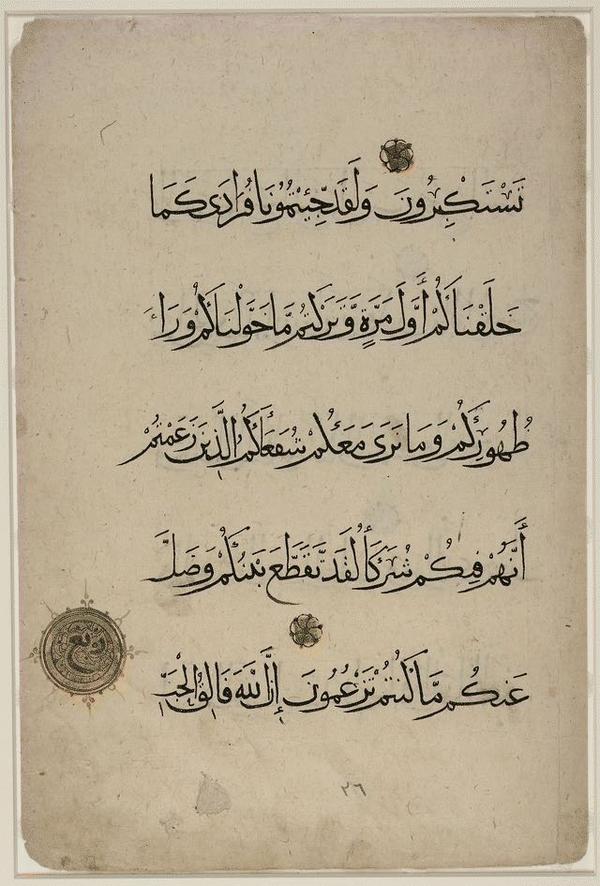 تَسْتَكْبِرُونَ وَلَقَدْ جِئْتُمُونَا فُرَادَى كَمَا
خَلَقْنَاكُمْ أَوَّلَ مَرَّةٍ وَّتَرَكْتُمْ مَّا خَوَّلْنَاكُمْ وَرَاءَ
ظُهُورِكُمْ وَمَا نَرَى مَعَكُمْ شُفَعَاءَكُمُ الَّذِينَ زَعَمْتُمْ
أَنَّهُمْ فِيكُمْ شُرَكَاءُ لَقَدْ تَّقَطَّعَ بَيْنَكُمْ وَضَلَّ
ربع
عَنكُم مَّا كُنتُمْ تَزْعُمُونَ إِنَّ اللَّهَ فَالِقُ الْحَبِّ
٢٦